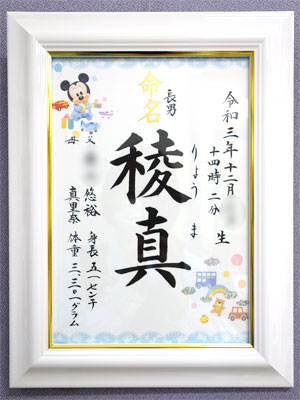 令和三年十二月
十四時二分
生
命名
長男
稜真
りょうま
父
悠裕
母
真里奈
身長 五一センチ
体重 三、三〇一グラム